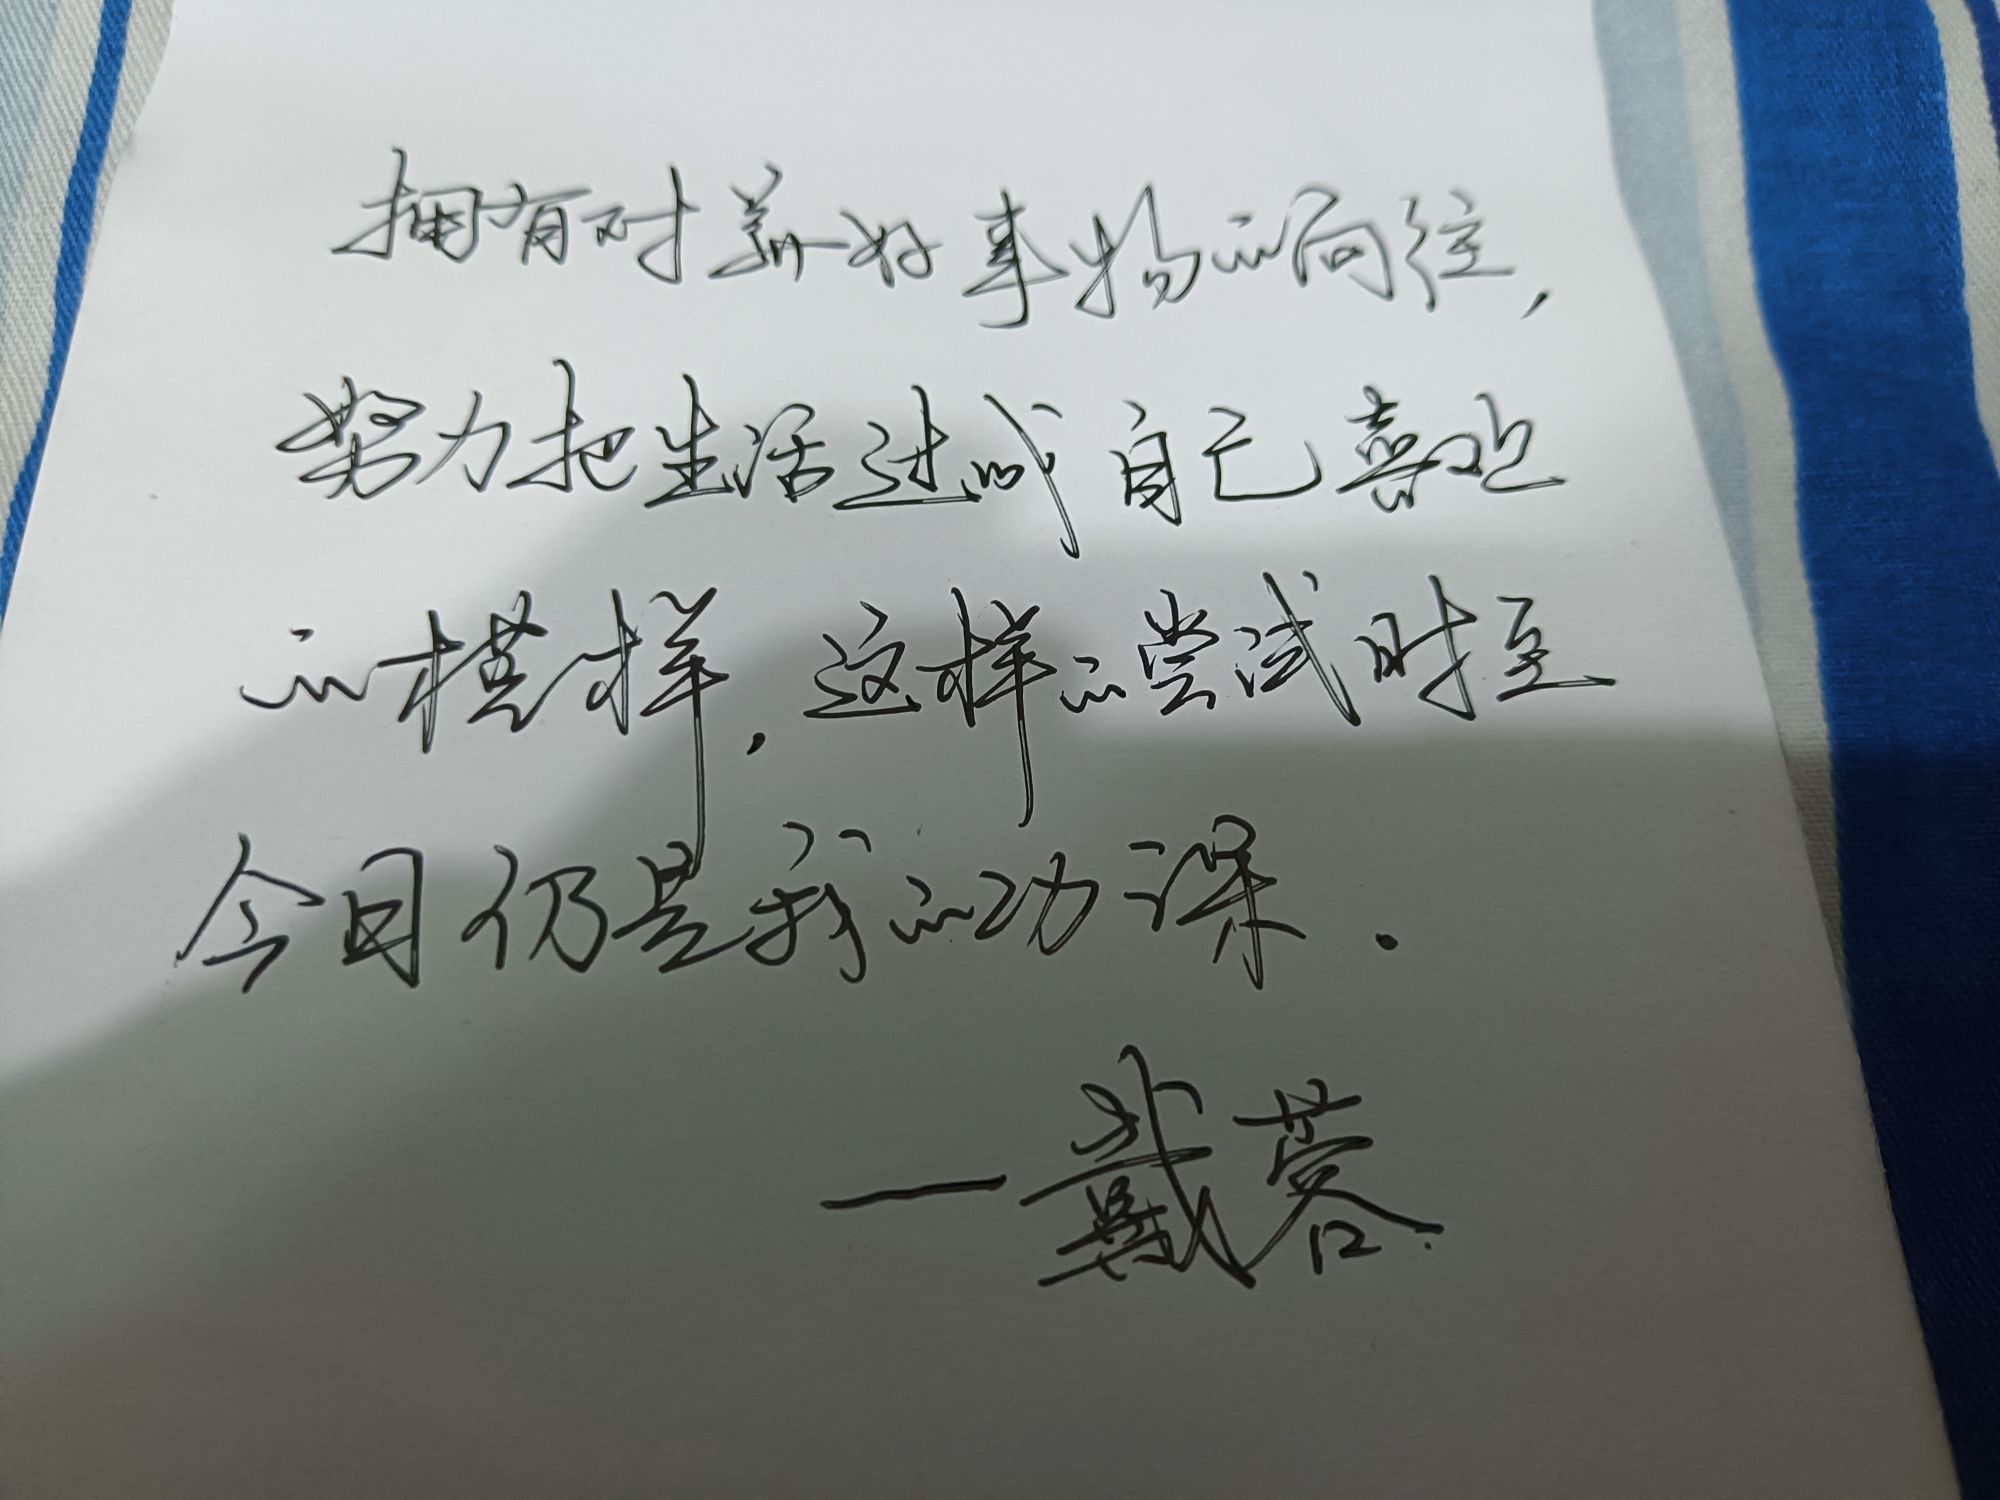 拥有对美好事物的向往，
努力把生活过成自己喜欢
的模样，这样的尝试时至
今日仍是我的功课．
—戴蓉